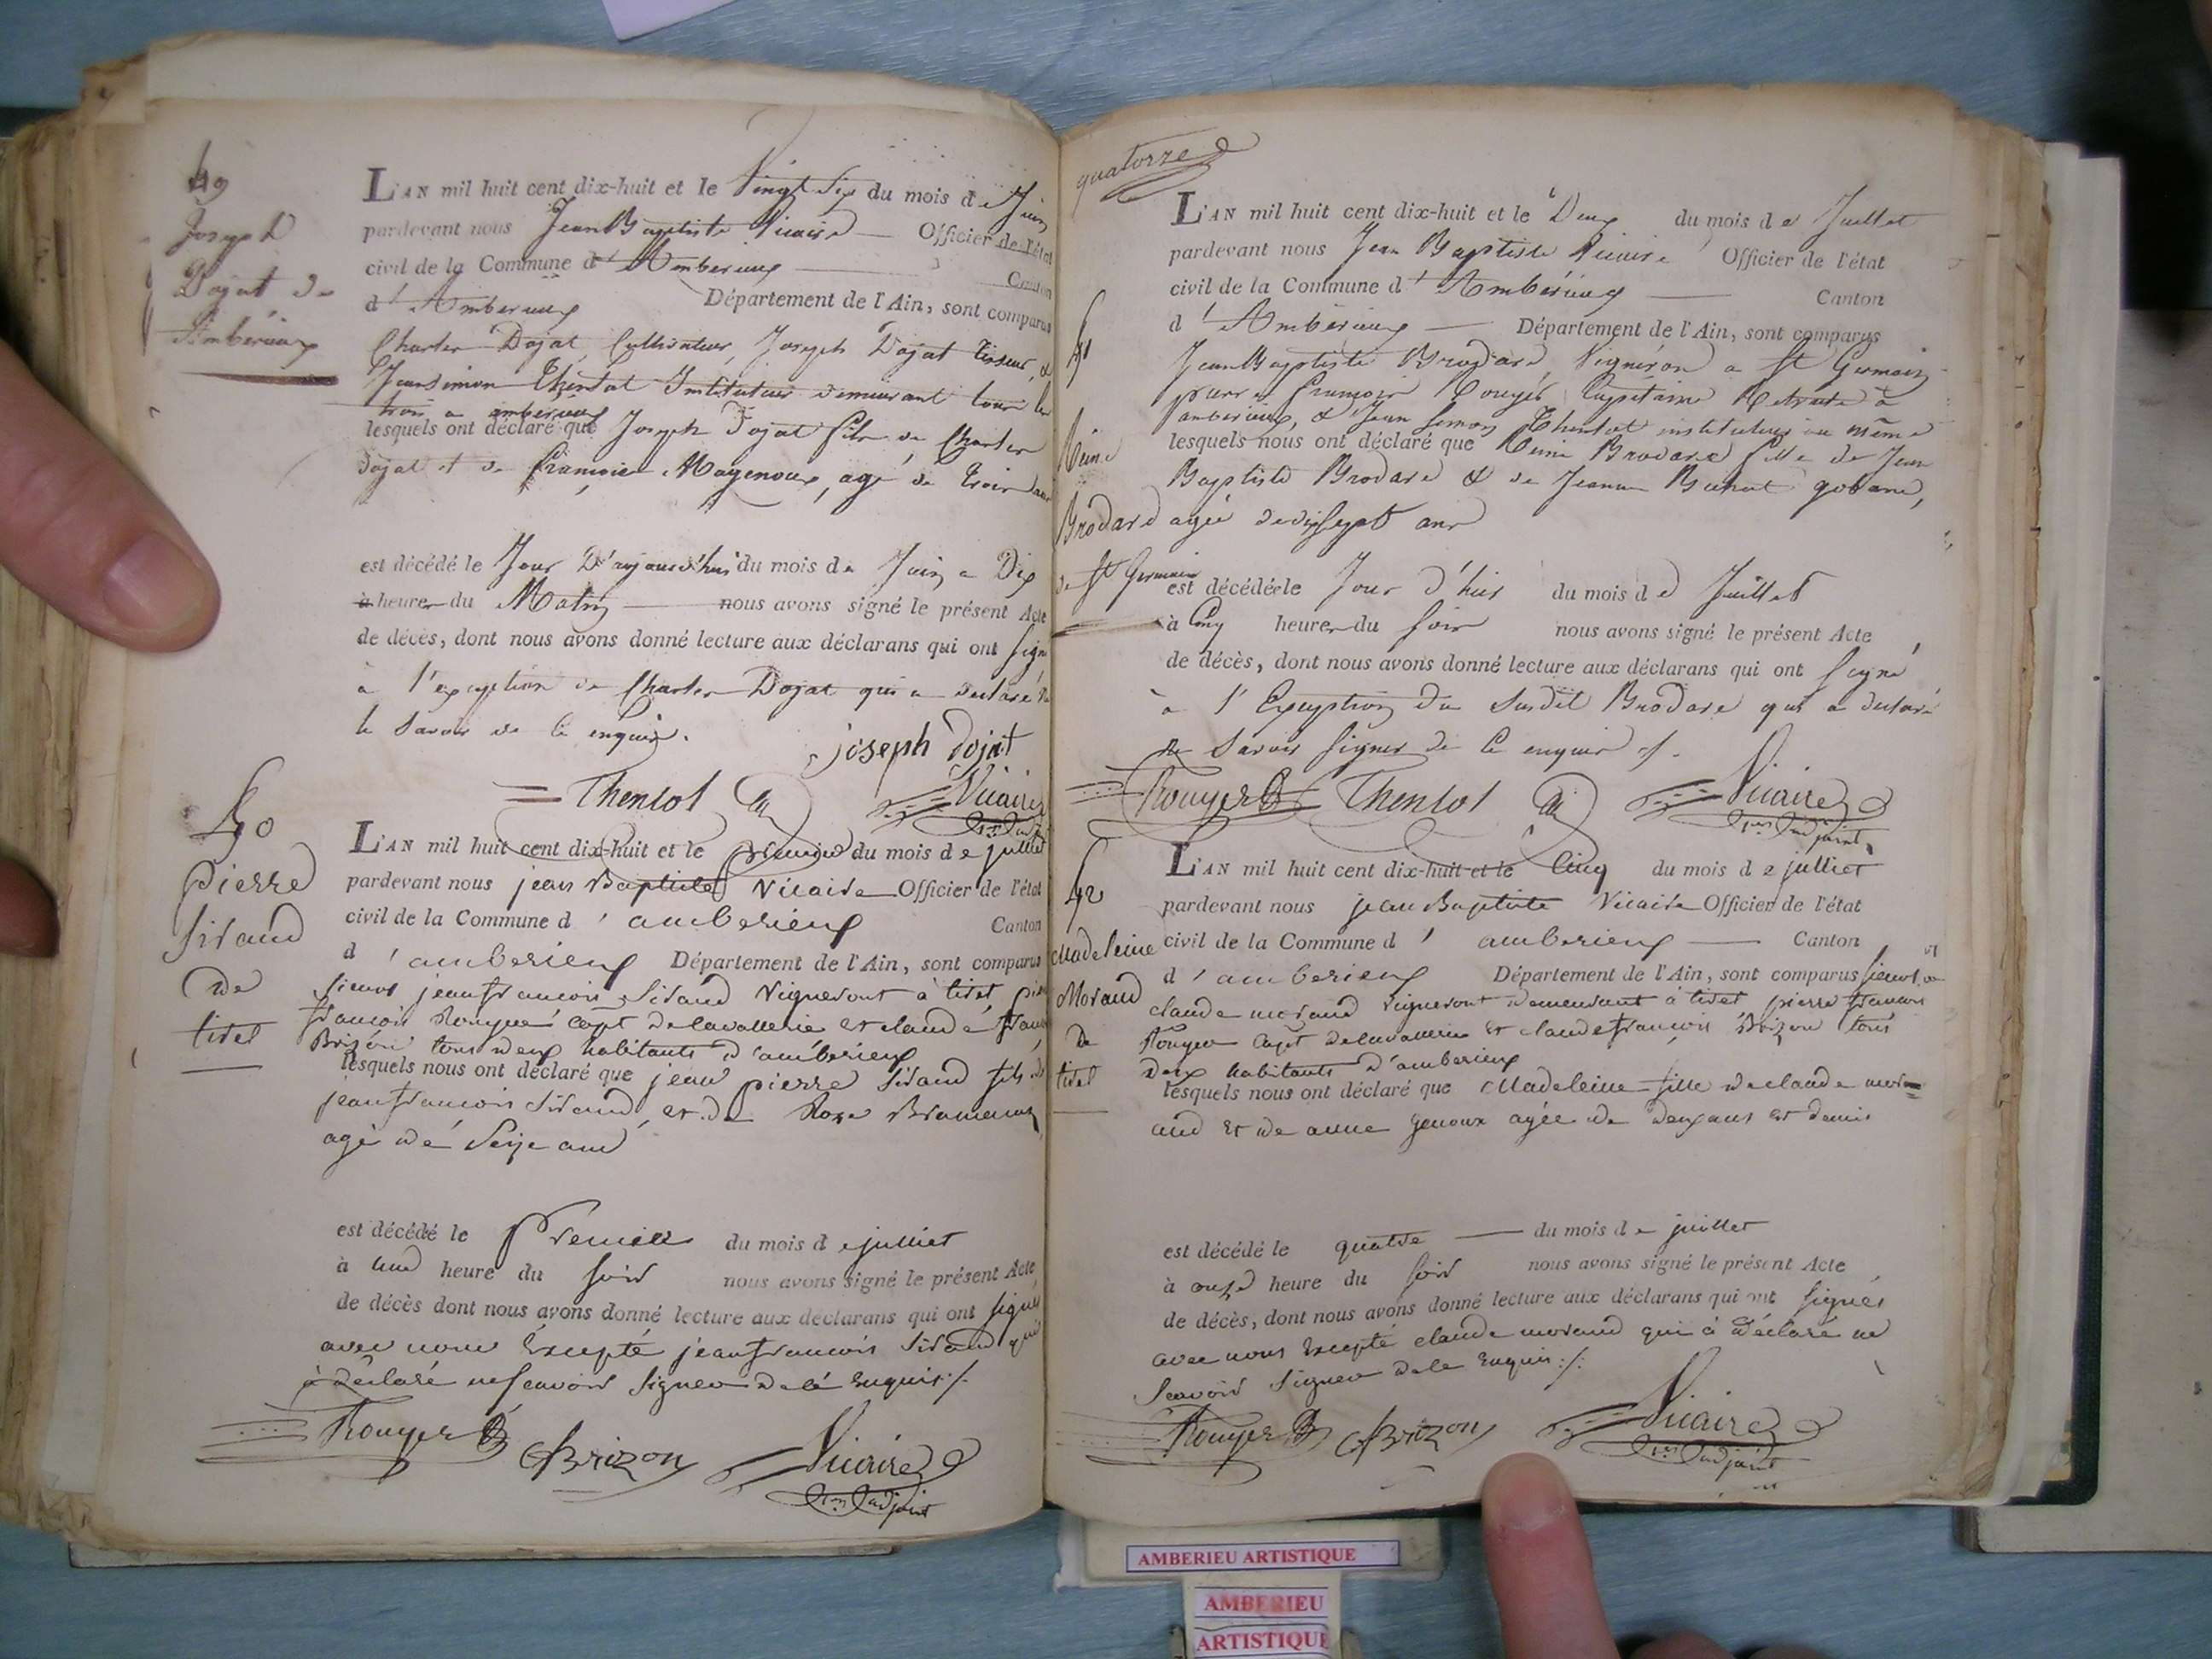 49
Joseph
Dojat de
Ambérieux
L'AN mil huit cent dix-huit et le Vingt Six du mois de Juin
pardevant nous Jean Baptiste Vicaire Officier de l'état
civil de la Commune d'Amberieux Canton
d'Amberieux Département de l'Ain, sont comparus
Charles Dojat Cultivateur, Joseph Dojat tisseur, &
Jean simon Thentot Instituteur demeurant tous les
trois a amberieux
lesquels ont déclaré que Joseph Dojat fils de Charles
Dojat et de Françoise Mayenoux, agé de trois ans
est décédé le Jour D'aujourd'hui du mois de Juin a Dix
à heures du Matin nous avons signé le présent Acte
de décès, dont nous avons donné lecture aux déclarans qui ont signé
à l'exception de Charles Dojat qui a déclaré ne
le savoir de ce enquis.
joseph Dojat
Thentot Vicaire
1er adjoint
50
Pierre
Siraud
de
tiret
L'AN mil huit cent dix-huit et le premier du mois de juillet
pardevant nous jean Baptiste Vicaire Officier de l'état
civil de la Commune d'amberieux Canton
d'amberieux Département de l'Ain, sont comparus
sieurs jean francois Siraud Vigneront à tiret pierre
francois Rouyer capt de cavallerie et claude francois
Brizon tous deux habitants d'amberieux
lesquels nous ont déclaré que jean pierre Siraud fils de
jean francois Siraud et de Roze Bramerel
agé de Seize ans
est décédé le Premier du mois de julliet
à une heure du soir nous avons signé le présent Acte
de décès dont nous avons donné lecture aux déclarans qui ont signés
avec nous Excepté jean francois Siraud qui
à déclaré ne scavoir signer de ce Enquis ./.
Rouyer CfBrizon Vicaire
1er adjoint
quatorze
51
Reine
Brodard
de St Germain
L'AN mil huit cent dix-huit et le Deux du mois de Juillet
pardevant nous Jean Baptiste Vicaire Officier de l'état
civil de la Commune d'Ambérieux Canton
d'Ambérieux Département de l'Ain, sont comparus
Jean Baptiste Brodard, Vigneron a St Germain
pierre françois Rouyer Capitaine Retraité à
amberieux, & Jean Simon Thentot instituteur au même
lesquels nous ont déclaré que Reine Brodard fille de Jean
Baptiste Brodard & de Jeanne
agée de dixsept ans
est décédée le Jour d'hier du mois de Juillet
à Cinq heures du soir nous avons signé le présent Acte
de décès, dont nous avons donné lecture aux déclarans qui ont signé
à l'Exception du susdit Brodard qui a déclaré
ne savoir signer de ce enquis ./.
Rouyer Thentot Vicaire
1er adjoint
52
Madeleine
Moraud
De
tiret
L'AN mil huit cent dix-huit et le Cinq du mois de julliet
pardevant nous jean Baptiste Vicaire Officier de l'état
civil de la Commune d'amberieux Canton
d'amberieux Département de l'Ain, sont comparus sieurs
claude moraud vigneront demeurant à tiret pierre francois
Rouyer capt de cavallerie et claude francois Brizon tous
deux habitants d'amberieux
lesquels nous ont déclaré que Madeleine fille de claude mor=
aud et de anne genoux agée de deux ans et demis
est décédé le quatre du mois de juillet
à onze heure du soir nous avons signé le présent Acte
de décès, dont nous avons donné lecture aux déclarans qui ont signés
avec nous Excepté claude moraud qui à déclaré ne
scavoir signer de ce Enquis ./.
Rouyer CfBrizon Vicaire
1er adjoint
AMBERIEU ARTISTIQUE
AMBERIEU
ARTISTIQUE